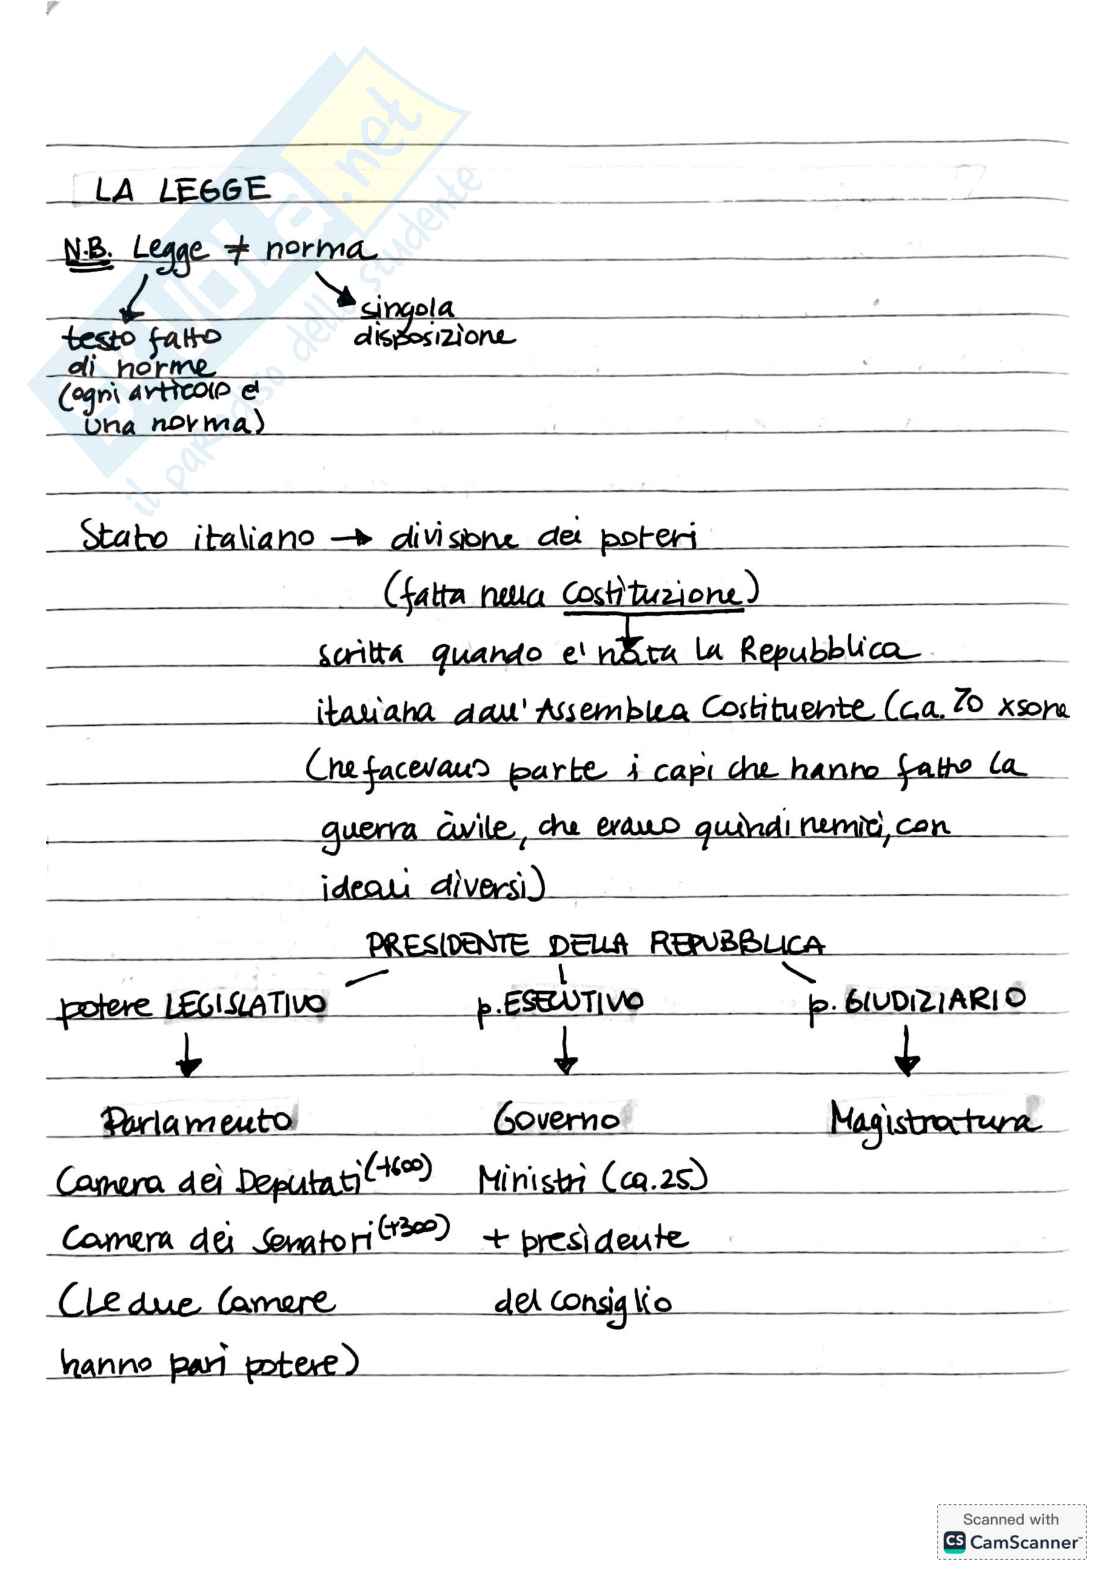 LA LEGGE
N.B. Legge ≠ norma
singola
disposizione
testo fatto
di norme
(ogni articolo è
una norma)
Stato italiano → divisione dei poteri
(fatta nella Costituzione)
scritta quando e' nata la Repubblica
italiana dall'Assemblea Costituente (ca. 70 xsone
(ne facevano parte i capi che hanno fatto la
guerra civile, che erano quindi nemici, con
ideali diversi)
PRESIDENTE DELLA REPUBBLICA
potere LEGISLATIVO p. ESECUTIVO p. GIUDIZIARIO
Parlamento Governo Magistratura
Camera dei Deputati (+600) Ministri (ca. 25)
Camera dei Senatori (+300) + presidente
(Le due Camere del consiglio
hanno pari potere)
skuola.net
il paradiso dello studente
Scanned with
CS CamScanner